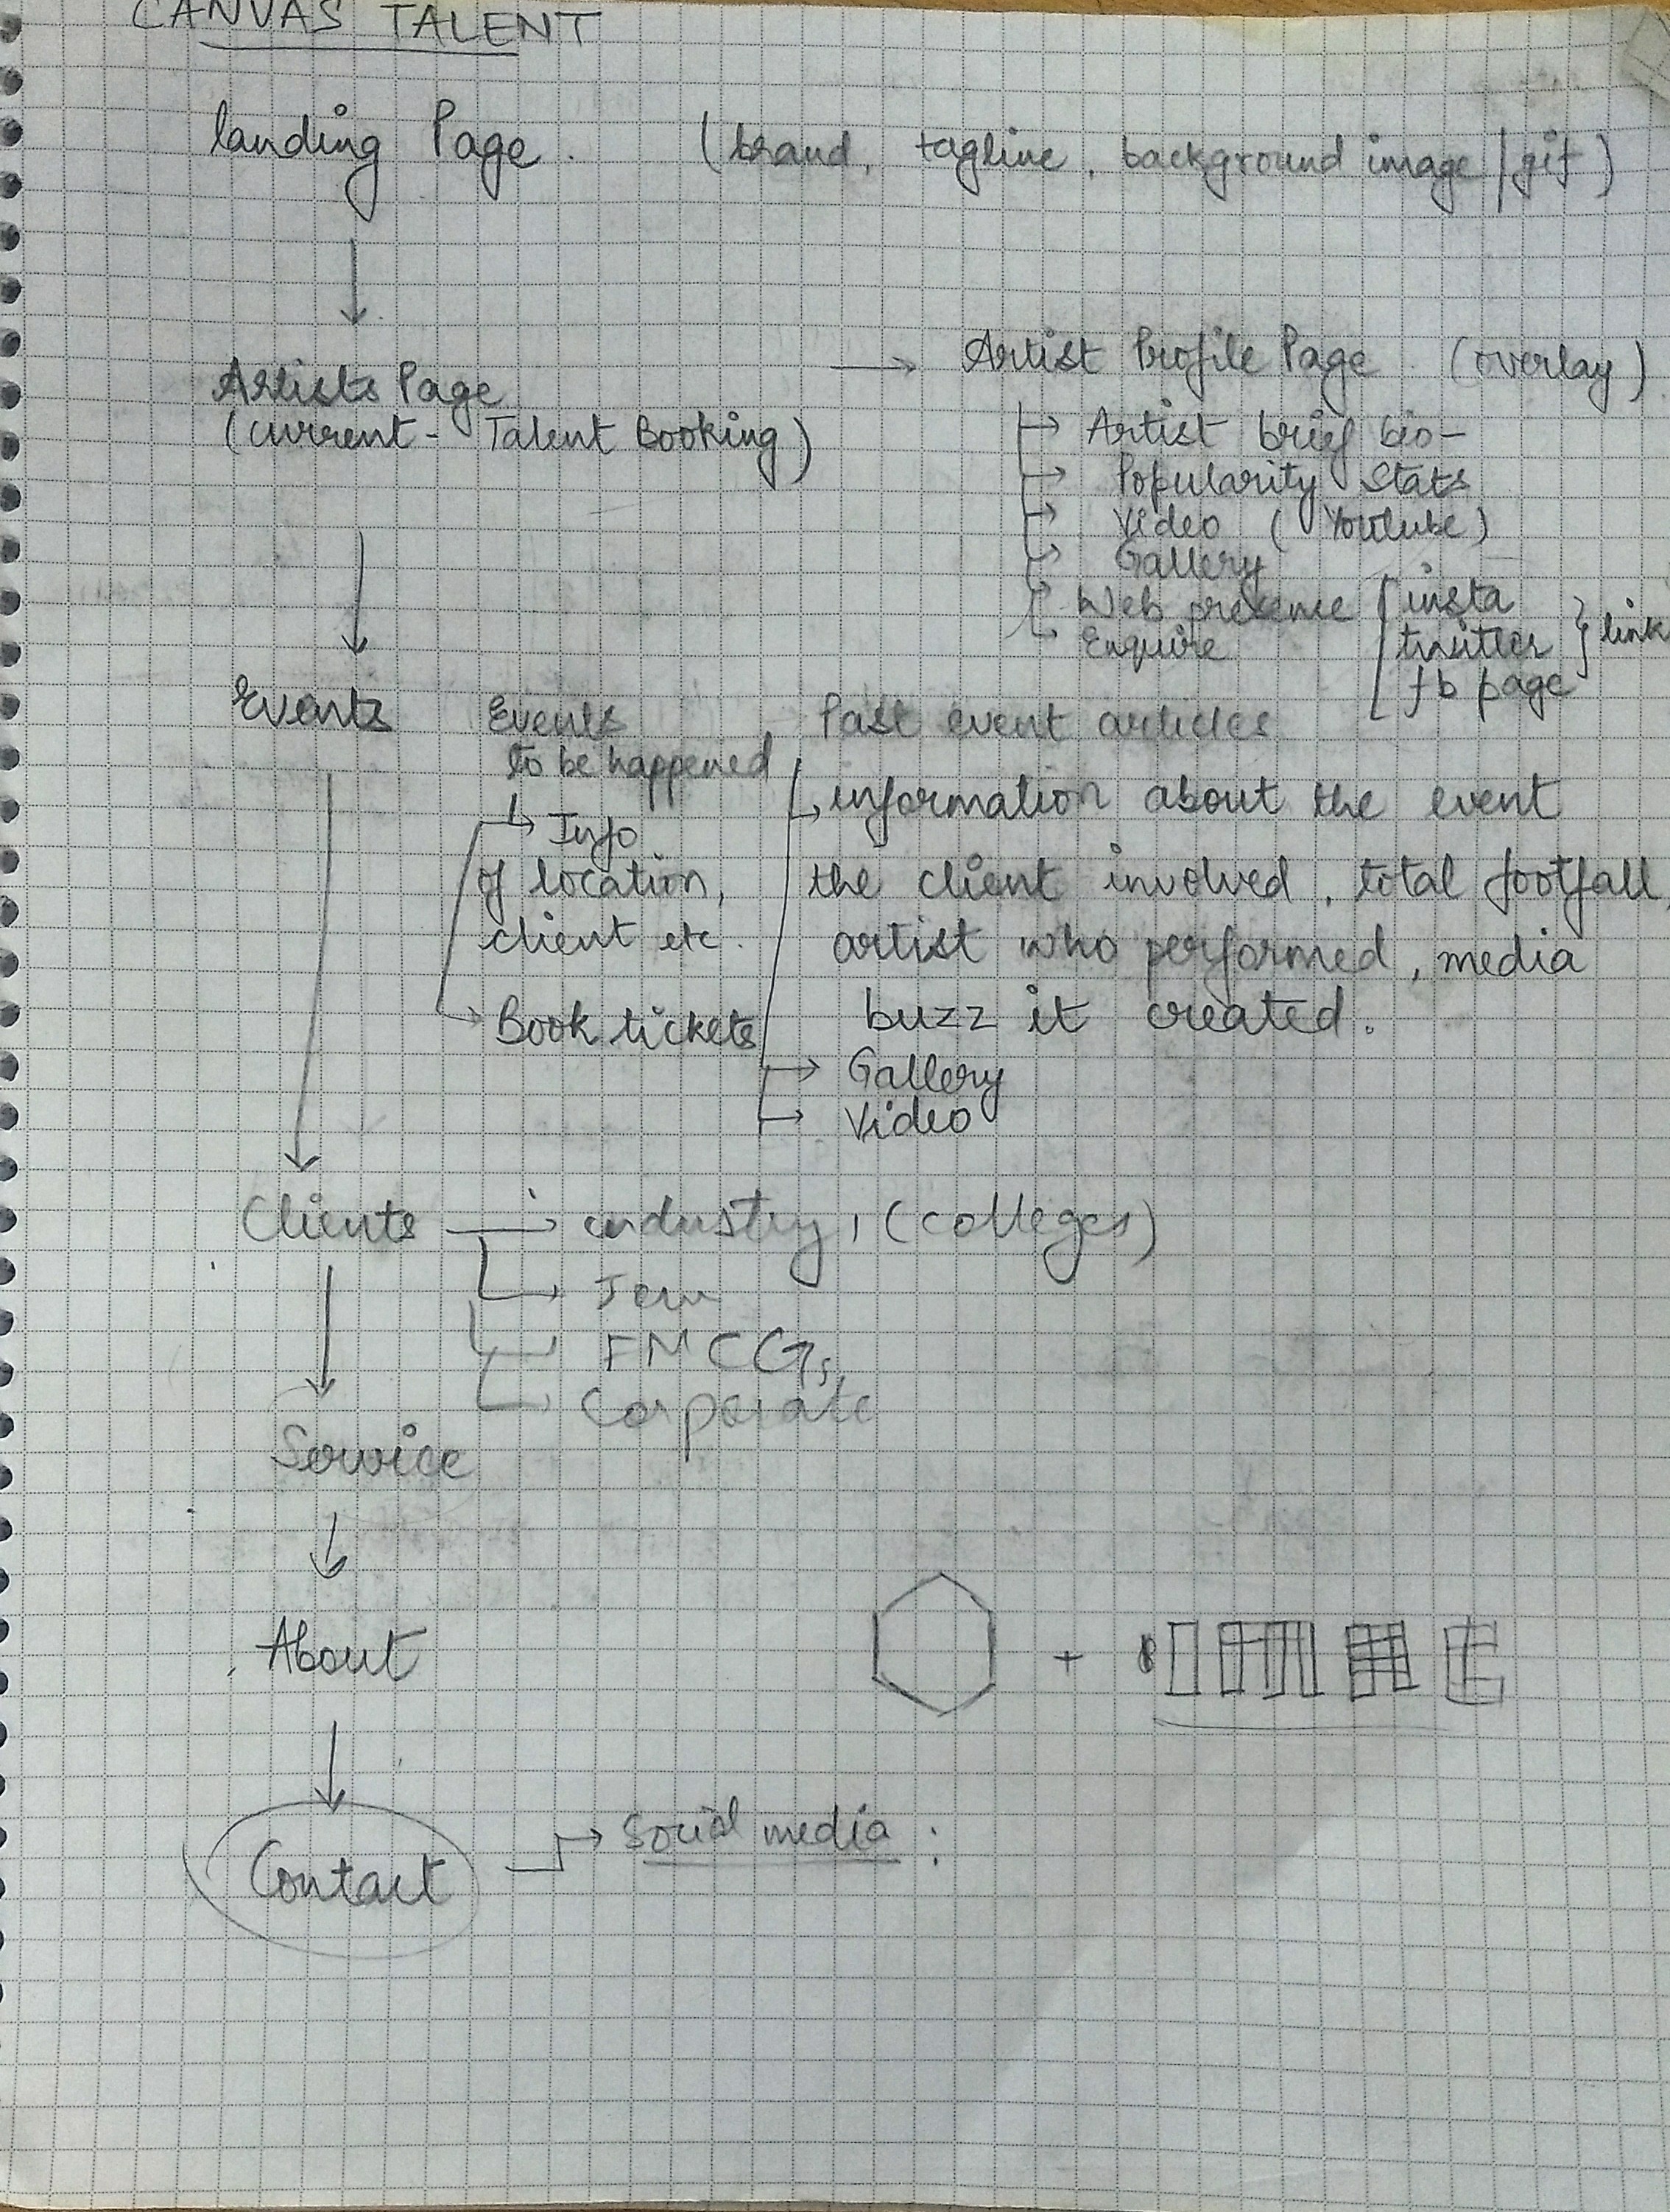 CANVAS TALENT
landing Page. (brand, tagline, background image / gif)
Artists Page
(current - Talent Booking)
Artist Profile Page (overlay)
Artist brief bio -
Popularity Stats
Video (Youtube)
Gallery
Web presense
Enquire
insta
twitter
fb page
link
Events
Events
to be happened
Info
of location,
client etc.
Book tickets
Past event articles
information about the event
the client involved, total footfall,
artist who performed, media
buzz it created.
Gallery
Video
Clients
industry, (colleges)
FMCGs,
Corporate
Service
About
+
Contact
Social media :